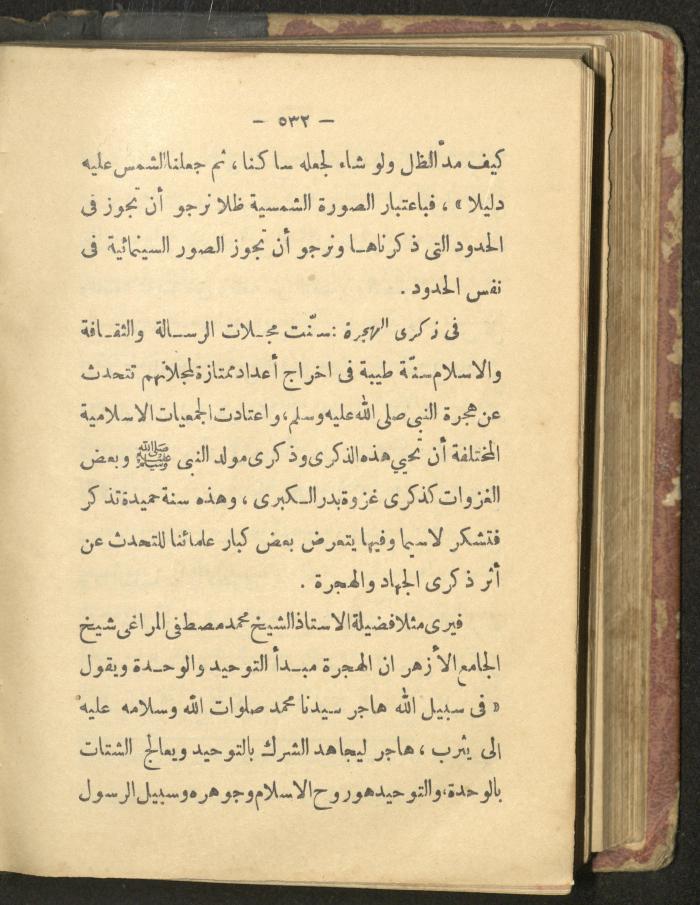 — ٥٣٢ —
كيف مدّ الظل ولو شاء لجعله ساكنا ، ثم جعلنا الشمس عليه
دليلا » ، فباعتبار الصورة الشمسية ظلا نرجو أن تجوز فى
الحدود التى ذكرناها ونرجو أن تجوز الصور السينمائية فى
نفس الحدود .
فى ذكرى الهجرة : سنّت مجلات الرسالة والثقافة
والاسلام سنّة طيبة فى اخراج أعداد ممتازة لمجلاتهم تتحدث
عن هجرة النبى صلى الله عليه وسلم ، واعتادت الجمعيات الاسلامية
المختلفة أن تحيي هذه الذكرى وذكرى مولد النبى ﷺ وبعض
الغزوات كذكرى غزوة بدر الكبرى ، وهذه سنة حميدة تذكر
فتشكر لاسيما وفيها يتعرض بعض كبار علمائنا للتحدث عن
أثر ذكرى الجهاد والهجرة .
فيرى مثلا فضيلة الاستاذ الشيخ محمد مصطفى المراغى شيخ
الجامع الأزهر ان الهجرة مبدأ التوحيد والوحدة ويقول
« فى سبيل الله هاجر سيدنا محمد صلوات الله وسلامه عليه
الى يثرب ، هاجر ليجاهد الشرك بالتوحيد ويعالج الشتات
بالوحدة، والتوحيد هو روح الاسلام وجوهره وسبيل الرسول